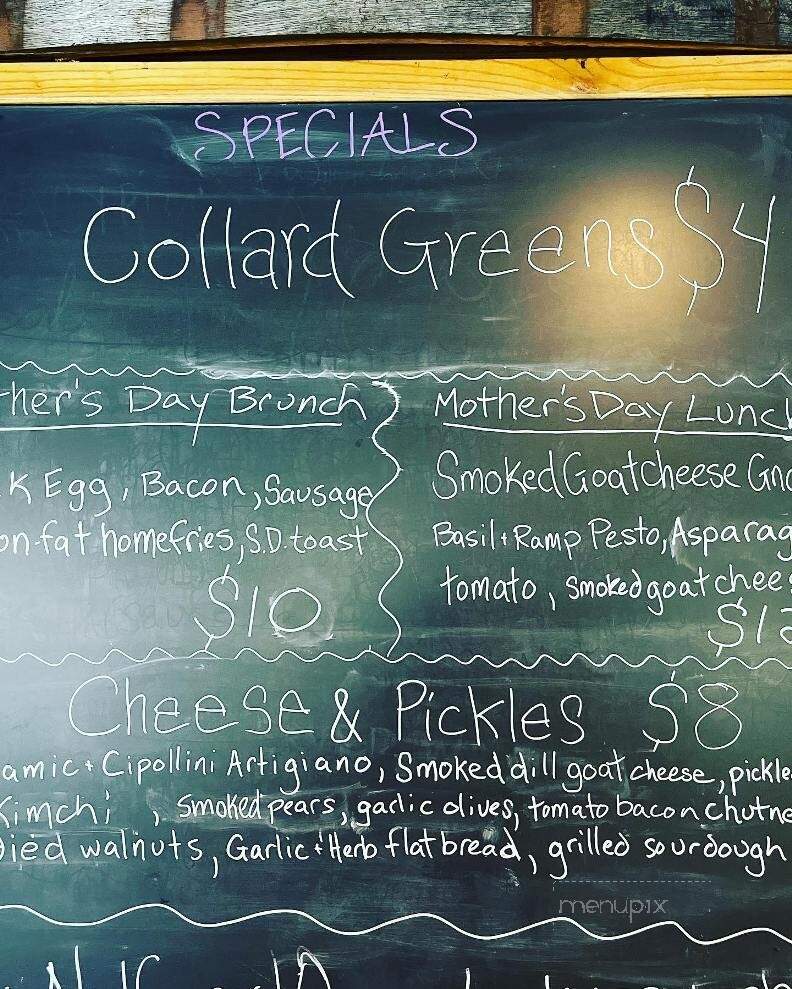 SPECIALS
Collard Greens $4
her's Day Brunch
k Egg, Bacon, Sausage
on-fat homefries, S.D. toast
$10
Mother's Day Lunch
Smoked Goatcheese Gno
Basil + Ramp Pesto, Asparag
tomato, smoked goat chees
$12
Cheese & Pickles $8
amic + Cipollini Artigiano, Smoked dill goat cheese, pickle
Kimchi , smoked pears, garlic olives, tomato bacon chutne
died walnuts, Garlic + Herb flatbread, grilled sourdough
menupix